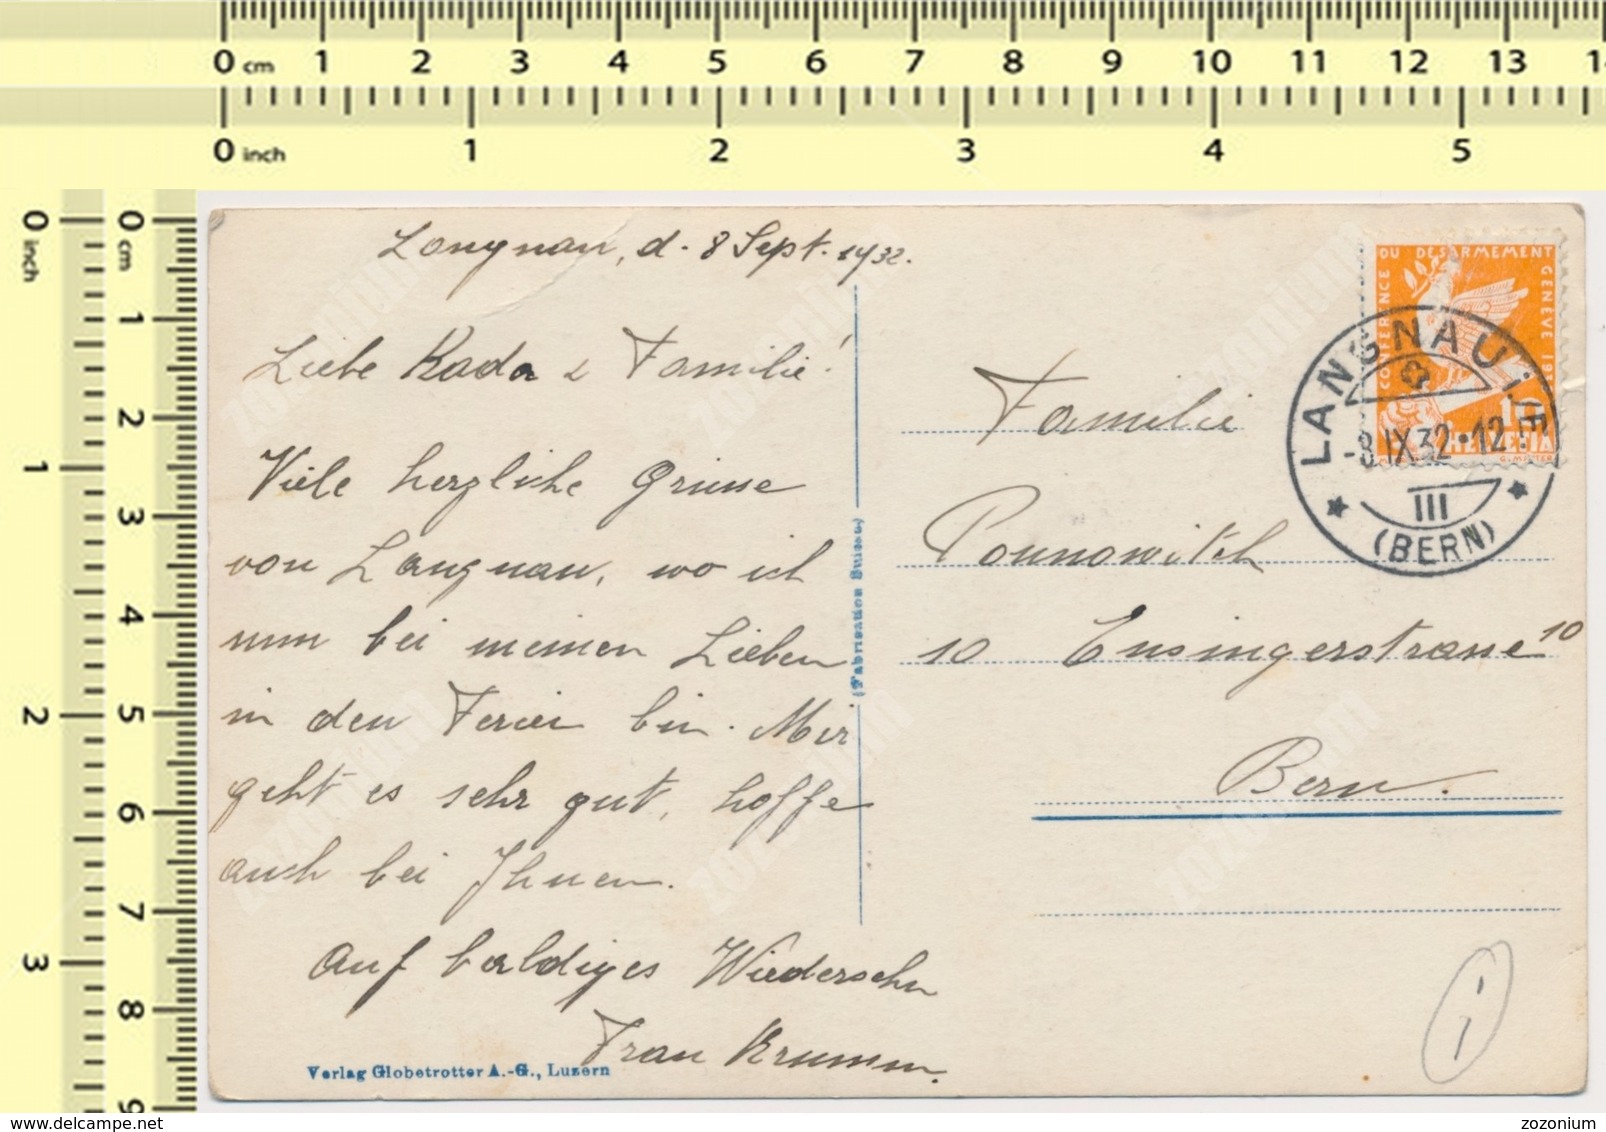 0 cm 1 2 3 4 5 6 7 8 9 10 11 12 13 14
0 inch 1 2 3 4 5
0 inch 1 2 3
0 cm 1 2 3 4 5 6 7 8 9
Langnau, d. 8 Sept. 1932.
Liebe Rada & Familie!
Viele herzliche Grüsse
von Langnau, wo ich
nun bei meinen Lieben
in den Ferien bin. Mir
geht es sehr gut, hoffe
auch bei Ihnen.
Auf baldiges Wiedersehn
Frau Krumm.
Verlag Globetrotter A.-G., Luzern
(Fabrication Suisse)
CONFERENCE DU DESARMEMENT GENEVE 193
10
HELVETIA
LANGNAU i/E
-8.IX.32.-12
III
(BERN)
Familie
Pounowitch
10 Ensingerstrasse 10
Bern.
1
7
zozonium
zozonium
zozonium
zozonium
zozonium
zozonium
zozonium.com